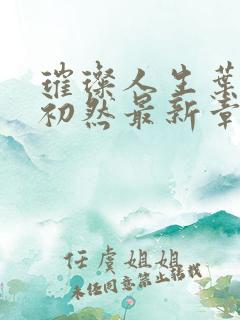 璀璨人生叶
初然最新章
任虞姐姐
未经同意禁止转载